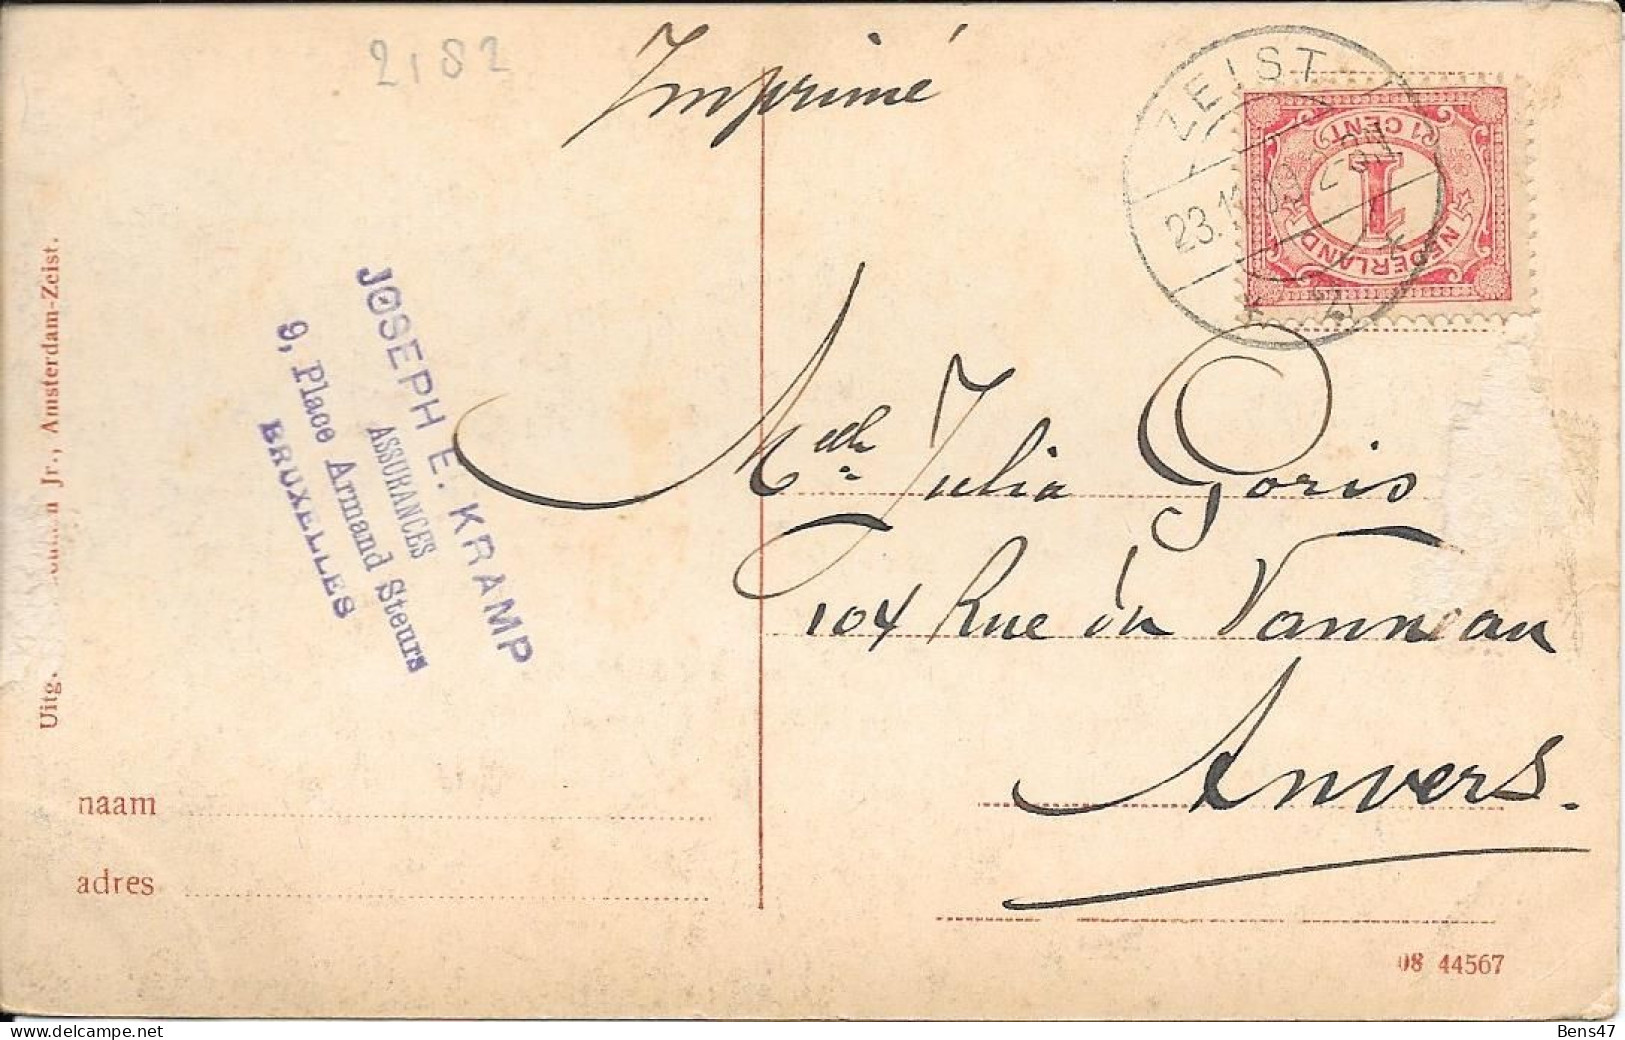 2182
Imprimé
ZEIST
23.
1 CENT
1
NEDERLAND
Jr., Amsterdam-Zeist.
Uitg.
JOSEPH E. KRAMP
ASSURANCES
9, Place Armand Steurs
BRUXELLES
Melle Julia Goris
104 Rue du Vanneau
Anvers.
naam
adres
08 44567
Bens47